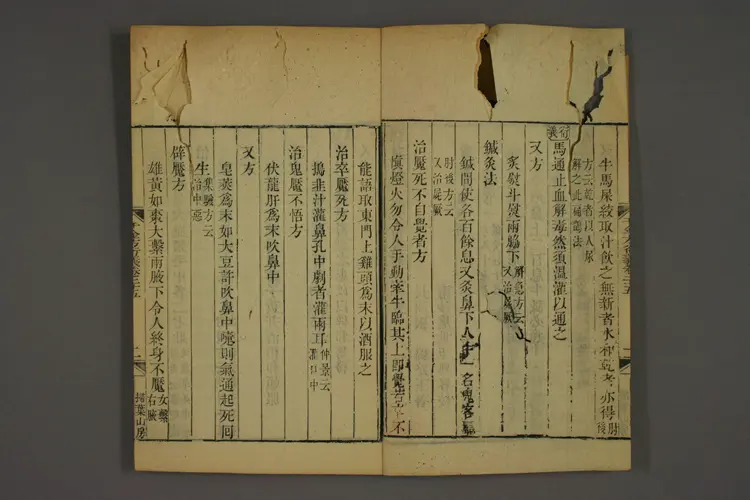 牛馬屎絞取汁飲之無新者水和乾者亦得肘後
方云乾者以人尿
解之此補驚法
衍義
馬通止血解毒然須溫灌以通之
又方
炙熨斗熨兩脇下
解急方云
又治尸厥
鍼灸法
鍼間使各百餘息又灸鼻下人中一名鬼客廳
肘後方云
又治尸厥
治魘死不自覺者方
愼燈火勿令人手動牽牛臨其上即覺若卒不
能語取東門上雞頭爲末以酒服之
治卒魘死方
搗韭汁灌鼻孔中劇者灌兩耳
仲景云
灌口中
治鬼魘不悟方
伏龍肝爲末吹鼻中
又方
皂莢爲末如大豆許吹鼻中嚏則氣通起死回
生
集驗方云
治中惡
辟魘方
雄黃如棗大繫兩腋下令人終身不魘
女繫
右腋
二
掃葉山房